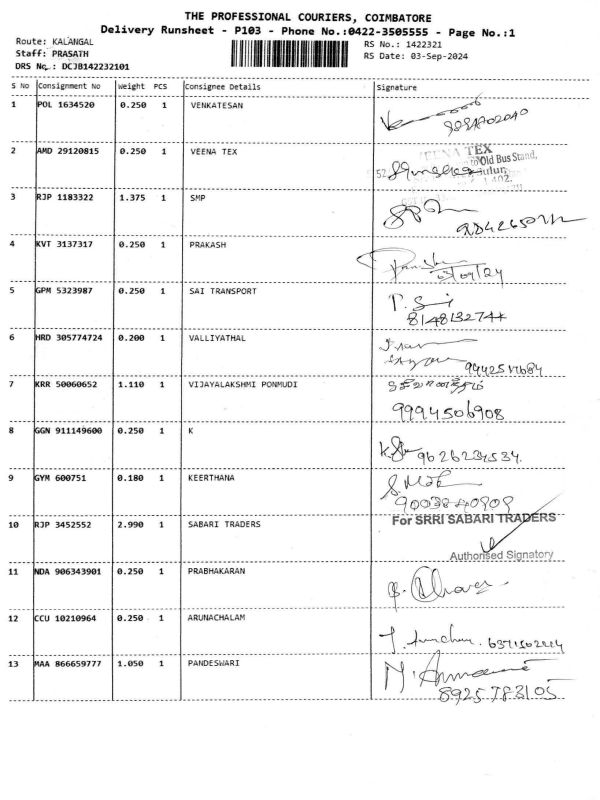 THE PROFESSIONAL COURIERS, COIMBATORE
Delivery Runsheet - P103 - Phone No.:0422-3505555 - Page No.:1
Route: KALANGAL
Staff: PRASATH
DRS No.: DCJB142232101
RS No.: 1422321
RS Date: 03-Sep-2024
S No Consignment No Weight PCS Consignee Details Signature
1 POL 1634520 0.250 1 VENKATESAN
2 AMD 29120815 0.250 1 VEENA TEX
VEENA TEX
to Old Bus Stand,
3 RJP 1183322 1.375 1 SMP
4 KVT 3137317 0.250 1 PRAKASH
03/09/24
5 GPM 5323987 0.250 1 SAI TRANSPORT
T. Sai
6 HRD 305774724 0.200 1 VALLIYATHAL
7 KRR 50060652 1.110 1 VIJAYALAKSHMI PONMUDI
9994506908
8 GGN 911149600 0.250 1 K
9626234534
9 GYM 600751 0.180 1 KEERTHANA
9003840909
10 RJP 3452552 2.990 1 SABARI TRADERS
For SRRI SABARI TRADERS
Authorised Signatory
11 NDA 906343901 0.250 1 PRABHAKARAN
12 CCU 10210964 0.250 1 ARUNACHALAM
13 MAA 866659777 1.050 1 PANDESWARI
8925783105